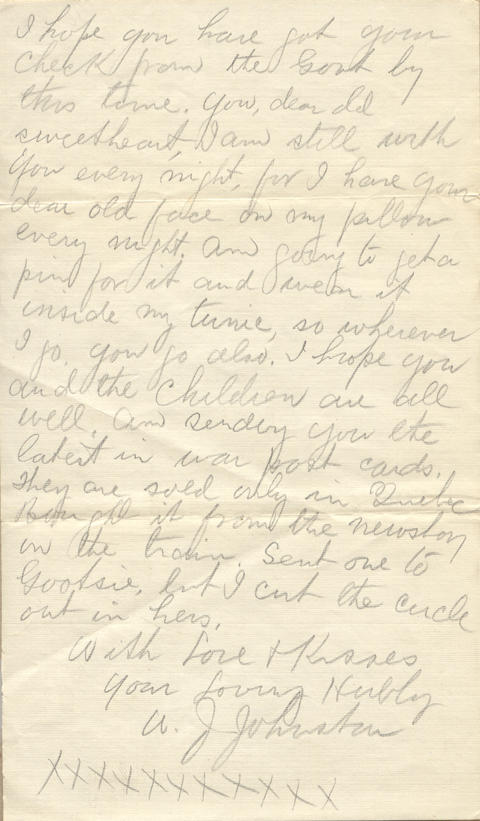 I hope you have got your
check from the Govt by
this time. You, dear old
sweetheart, I am still with
you every night, for I have your
dear old face on my pillow
every night. Am going to get a
pin for it and wear it
inside my tunic, so wherever
I go, you go also. I hope you
and the children are all
well. Am sending you the
latest in war post cards.
They are sold only in Quebec
Bought it from the newsboy
on the train. Sent one to
Gootsie, but I cut the circle
out in hers.
With Love & Kisses
Your Loving Hubby
J Johnston
XXXXXXXXXXXX